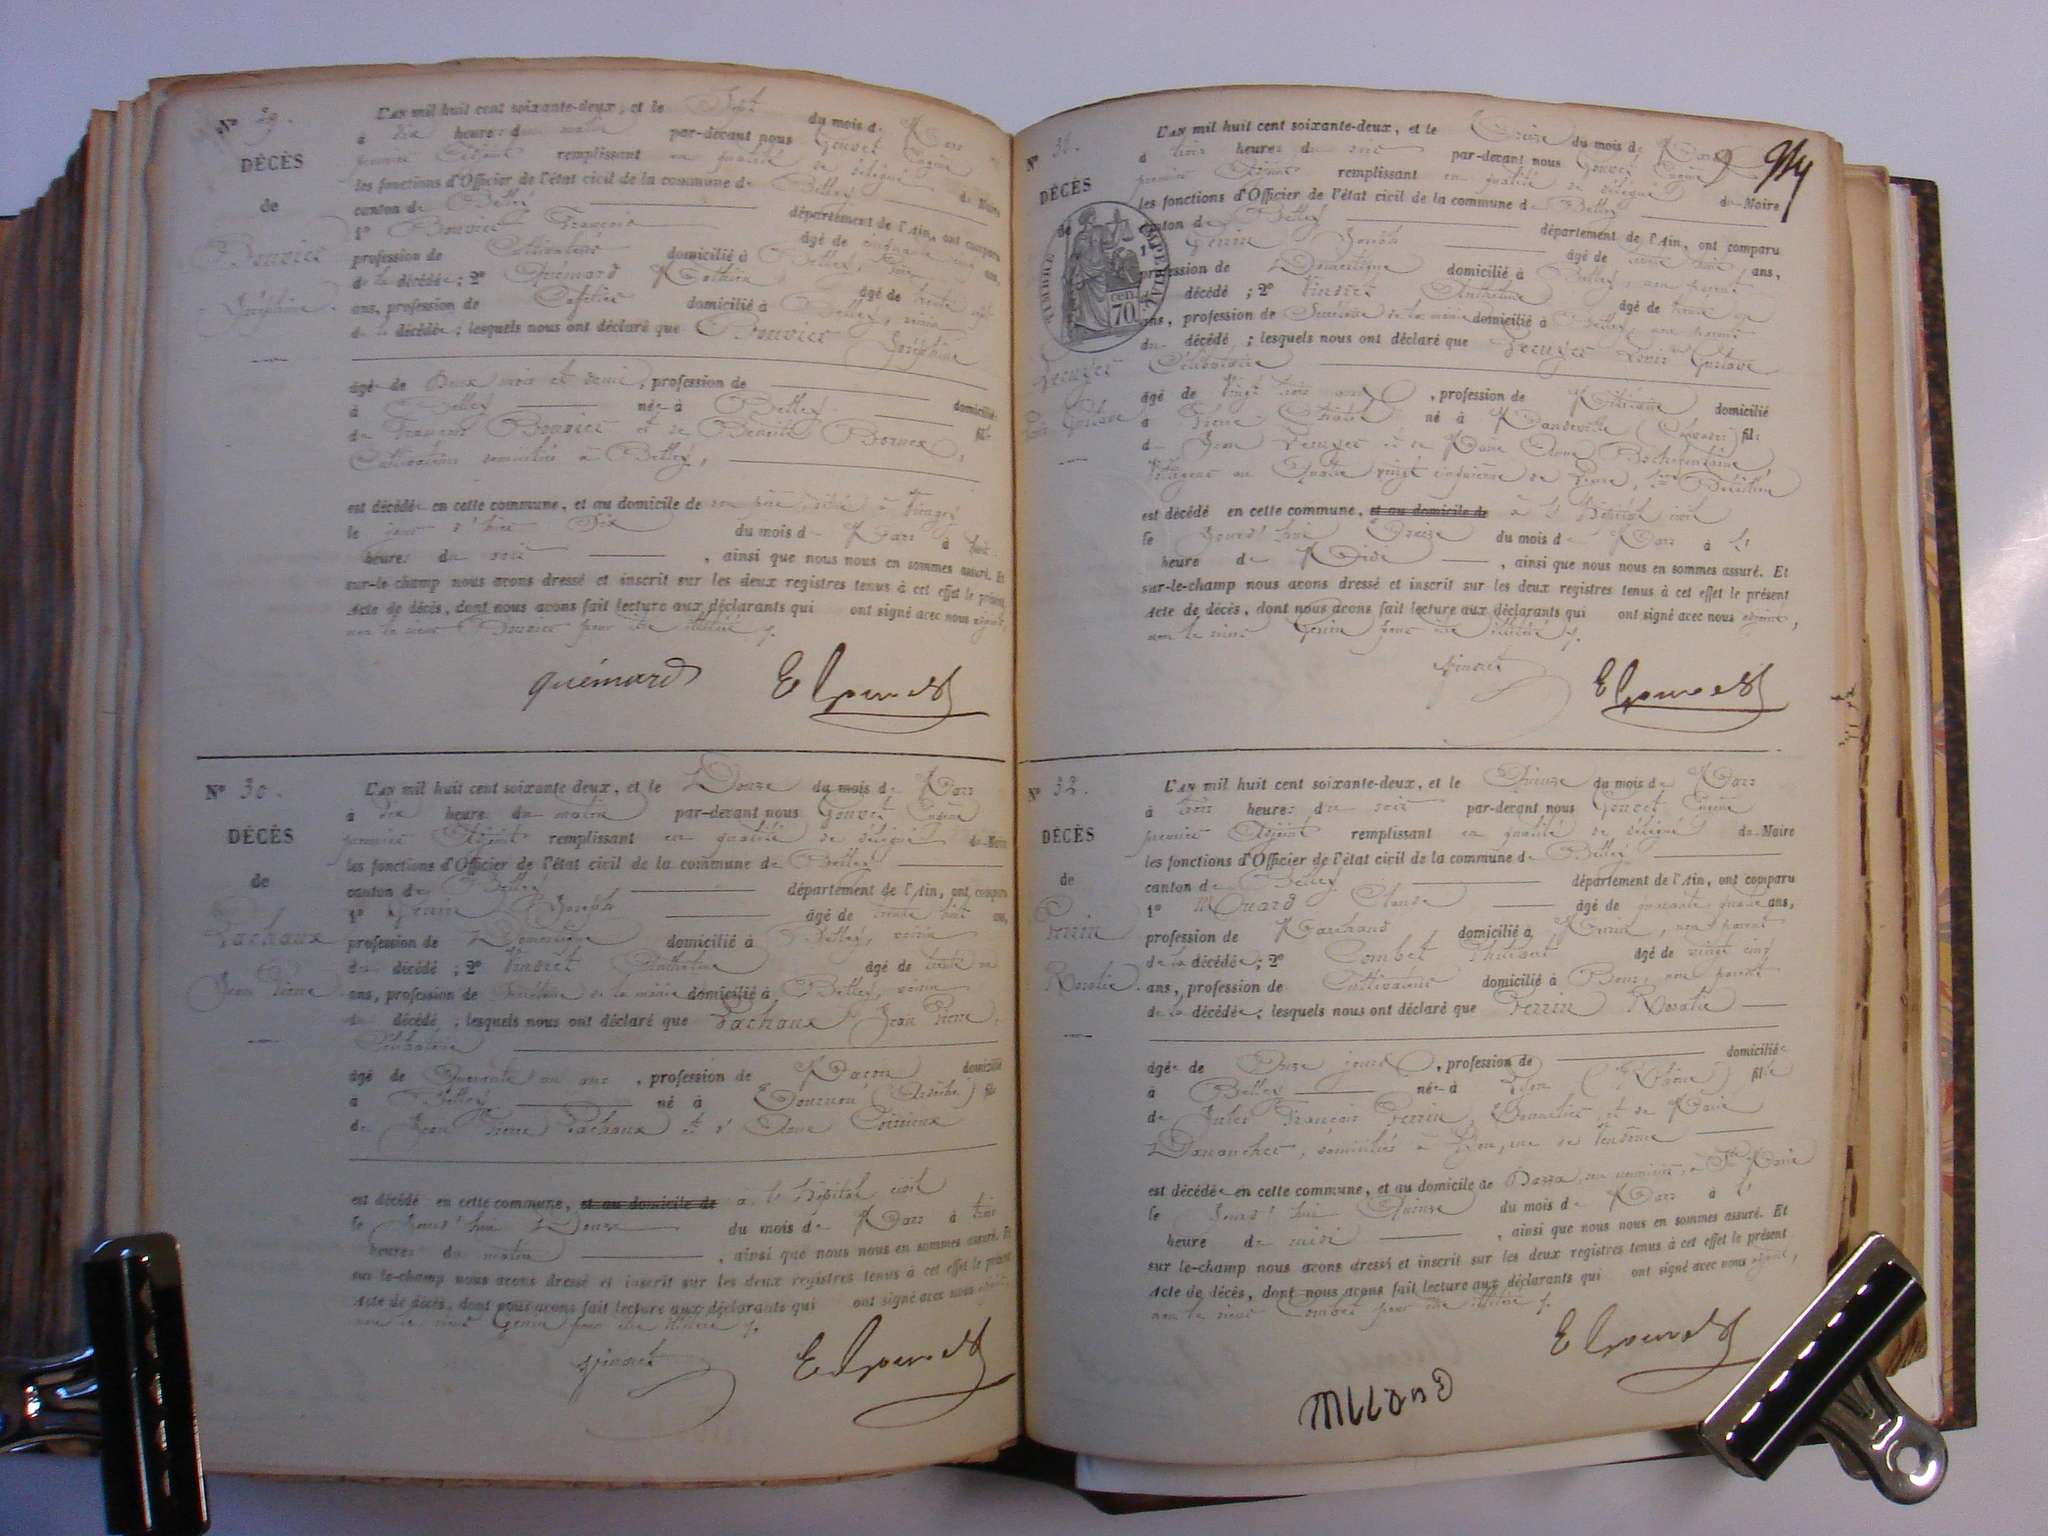 N° 29.
DÉCÈS
de
Bouvier
Joséphine.
L'AN mil huit cent soixante-deux, et le Sept du mois de Mars
à dix heures du matin par-devant nous Gouvet Eugène
premier Adjoint remplissant en qualité de délégué du Maire
les fonctions d'Officier de l'état civil de la commune de Belley
canton de Belley département de l'Ain, ont comparu
1° Bouvier François âgé de cinquante cinq ans,
profession de Cultivateur domicilié à Belley,
de la décédée ; 2° Quémard Mathieu âgé de trente
ans, profession de Cafetier domicilié à Belley, voisin
de la décédée ; lesquels nous ont déclaré que Bouvier Joséphine
âgée de Deux mois et demi, profession de domiciliée
à Belley née à Belley fille
de François Bouvier et de Benoîte
Cultivateurs domiciliés à Belley,
est décédée en cette commune, et au domicile de son père, situé à
le jour d'hier Six du mois de Mars à huit
heures du soir, ainsi que nous nous en sommes assuré. Et
sur-le-champ nous avons dressé et inscrit sur les deux registres tenus à cet effet le présent
Acte de décès, dont nous avons fait lecture aux déclarants qui ont signé avec nous adjoint,
non le sieur Bouvier pour être illétré
quémard E Gouvet
N° 30.
DÉCÈS
de
Pachaux
Jean Pierre
L'AN mil huit cent soixante deux, et le Douze du mois de Mars
à dix heures du matin par-devant nous Gouvet Eugène
premier Adjoint remplissant en qualité de délégué du Maire
les fonctions d'Officier de l'état civil de la commune de Belley
canton de Belley département de l'Ain, ont comparu
1° Genin Joseph âgé de trente huit ans,
profession de Domestique domicilié à Belley, voisin
du décédé ; 2° Vinoret Anthelme âgé de trente un
ans, profession de Secrétaire de la mairie domicilié à Belley, voisin
du décédé ; lesquels nous ont déclaré que Pachaux Jean Pierre,
Célibataire
âgé de Quarante un ans, profession de Maçon domicilié
à Belley né à Tournon (Ardèche) fils
de Jean Pierre Pachaux et d'Anne
est décédé en cette commune, et au domicile de à l'hôpital civil
le Jourd'hui Douze du mois de Mars à trois
heures du matin, ainsi que nous nous en sommes assuré. Et
sur-le-champ nous avons dressé et inscrit sur les deux registres tenus à cet effet le présent
Acte de décès, dont nous avons fait lecture aux déclarants qui ont signé avec nous adjoint
non le sieur Genin pour être illétré
Vinoret E Gouvet
N° 31.
DÉCÈS
de
TIMBRE IMPÉRIAL
70 cen
Leruyer
Louis Gustave
L'AN mil huit cent soixante-deux, et le Treize du mois de Mars
à trois heures du soir par-devant nous Gouvet Eugène
premier Adjoint remplissant en qualité de délégué du Maire
les fonctions d'Officier de l'état civil de la commune de Belley
canton de Belley département de l'Ain, ont comparu
1° Genin Joseph âgé de trente huit ans,
profession de Domestique domicilié à Belley, non parent
du décédé ; 2° Vinoret Anthelme âgé de trente un
ans, profession de Secrétaire de la mairie domicilié à Belley, non parent
du décédé ; lesquels nous ont déclaré que Leruyer Louis Gustave
Célibataire
âgé de Vingt trois ans, profession de Militaire domicilié
à né à Mandeville (Calvados) fils
de Jean Leruyer et de Marie Anne
Voltigeur au Quatre vingt cinquième de Ligne,
est décédé en cette commune, et au domicile de à l'Hôpital civil
le Jourd'hui Treize du mois de Mars à l'
heure de Midi, ainsi que nous nous en sommes assuré. Et
sur-le-champ nous avons dressé et inscrit sur les deux registres tenus à cet effet le présent
Acte de décès, dont nous avons fait lecture aux déclarants qui ont signé avec nous adjoint,
non le sieur Genin pour être illétré
Vinoret E Gouvet
N° 32.
DÉCÈS
de
Perrin
Rosalie.
L'AN mil huit cent soixante-deux, et le Quinze du mois de Mars
à trois heures du soir par-devant nous Gouvet Eugène
premier Adjoint remplissant en qualité de délégué du Maire
les fonctions d'Officier de l'état civil de la commune de Belley
canton de Belley département de l'Ain, ont comparu
1° Claude âgé de quarante quatre ans,
profession de Marchand domicilié à, non parent
de la décédée ; 2° Combet âgé de vingt cinq
ans, profession de Cultivateur domicilié à Bons, non parent
de la décédée ; lesquels nous ont déclaré que Perrin Rosalie
âgée de Onze jours, profession de domiciliée
à Belley née à Lyon (Rhône) fille
de Jules François Perrin, et de Marie
domiciliés à Lyon, rue de Vendôme
est décédée en cette commune, et au domicile de
le Jourd'hui Quinze du mois de Mars à l'
heure de midi, ainsi que nous nous en sommes assuré. Et
sur le-champ nous avons dressé et inscrit sur les deux registres tenus à cet effet le présent
Acte de décès, dont nous avons fait lecture aux déclarants qui ont signé avec nous adjoint,
non le sieur Combet pour être illétré
E Gouvet